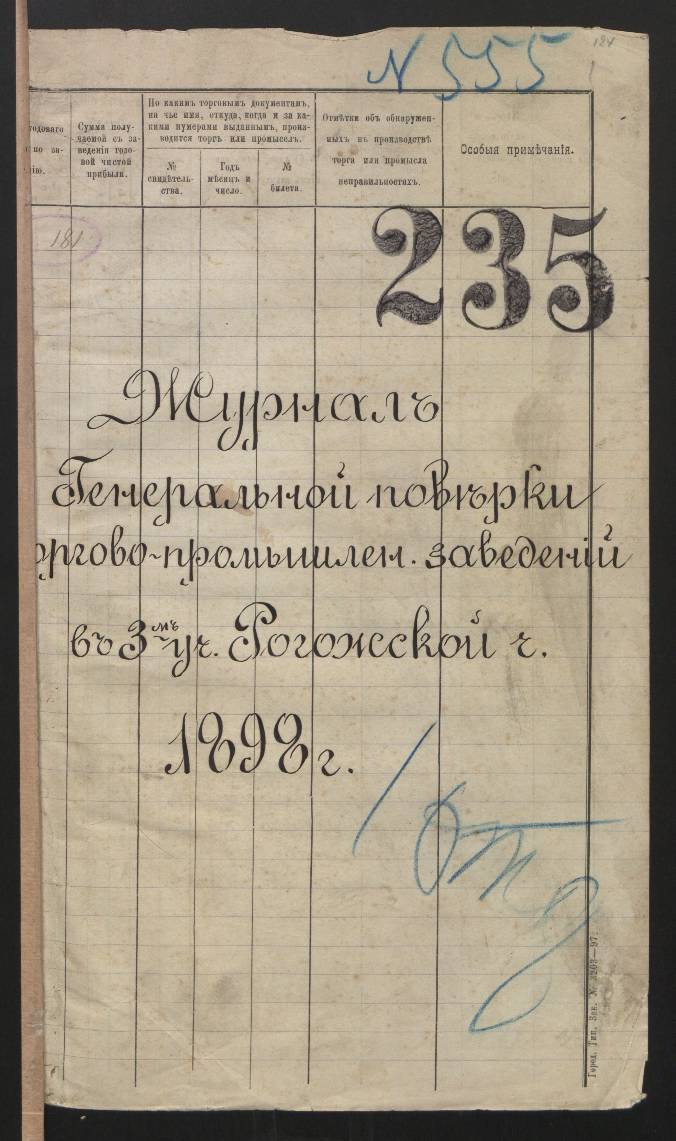 N 555
184
годоваго
по за-
нію.
Сумма полу-
чаемой съ за-
веденія голо-
вой чистой
прибыли.
По какимъ торговымъ документамъ,
на чье имя, откуда, когда и за ка-
кими нумерами выданнымъ, произ-
водится торгъ или промыселъ.
№
свидѣтель-
ства.
Годъ
мѣсяцъ и
число.
№
билета.
Отмѣтки объ обнаружен-
ныхъ въ производствѣ
торга или промысла
неправильностяхъ.
Особыя примѣчанія.
181
235
Журналъ
Генеральной повѣрки
оргово-промышлен. заведеній
въ 3мъ уч. Рогожской ч.
1898 г.
Город. Тип. Зак. № 3203—97.